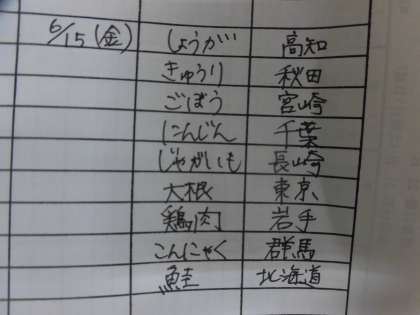 6/15(金) しょうが 高知
きゅうり 秋田
ごぼう 宮崎
にんじん 千葉
じゃがいも 長崎
大根 東京
鶏肉 岩手
こんにゃく 群馬
鮭 北海道